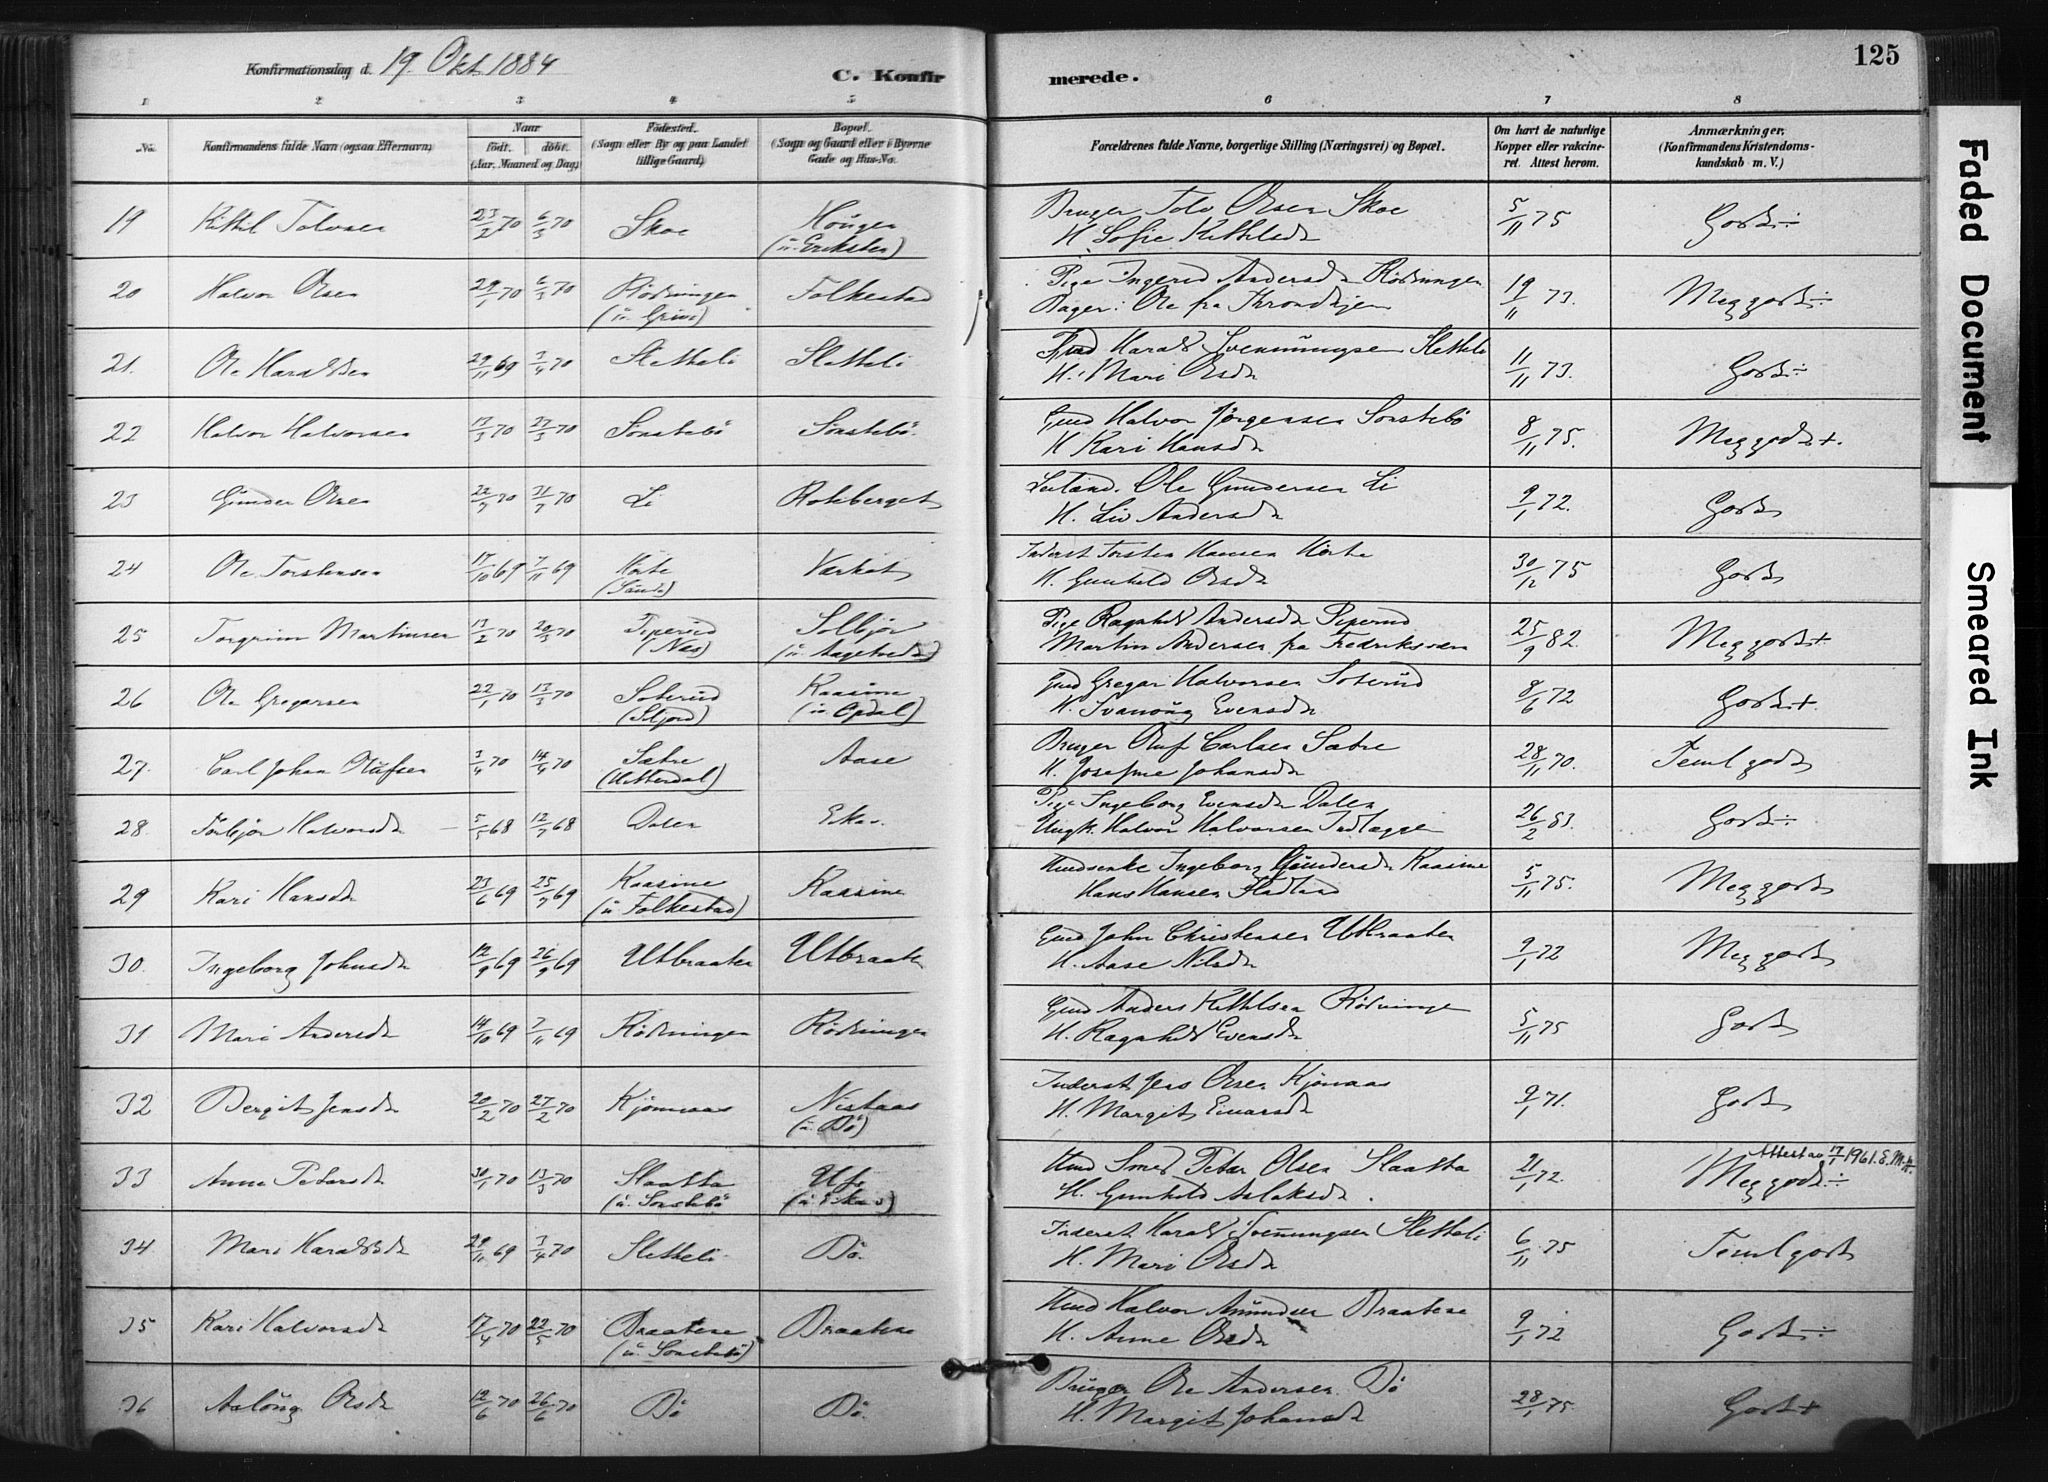 Konfirmationsdag d. 19. Okt. 1884
C. Konfir
merede.
125
1 2 3 4 5 6 7 8
No. Konfirmandens fulde Navn (ogsaa Efternavn). Naar født. døbt. (Aar, Maaned og Dag.) Fødested. (Sogn eller By og paa Landet tillige Gaard.) Bopæl. (Sogn og Gaard eller i Byerne Gade og Hus-No. Forældrenes fulde Navne, borgerlige Stilling (Næringsvei) og Bopæl. Om havt de naturlige Kopper eller vakcineret. Attest herom. Anmærkninger. (Konfirmandens Kristendomskundskab m. V.)
19 Kittil Tolvsen 23/2 70 6/3 70 Skoe Haugen Bruger Tolv Olsen Skoe 5/11 75 Godt ÷
(u. Eriksten) H. Sofie Kittilsd
20 Halvor Olsen 29/1 70 6/3 70 Rødningen Folkestad Pige Ingerid Andersd Rødningen 19/11 73. Meg godt ÷
(u. Grivi) Bager: Ole fra Throndhjem
21. Ole Haraldsen 29/11 69 3/4 70 Sletteli Sletteli Gmd Harald Svennungsen Sletteli 11/11 73. Godt ÷
H. Mari Olsd
22 Halvor Halvorsen 13/3 70 27/3 70 Sønstebø Sønstebø. Gmd Halvor Jørgensen Sønstebø 8/11 75. Meg godt +.
H Kari Hansd
23 Gunder Olsen 22/7 70 31/7 70 Li Rokberget Leilænd. Ole Gundersen Li 9/1 72. Godt
H. Liv Andersd
24 Ole Torstensen 17/10 69 7/11 69 Hørte Værket Inderst Torsten Hansen Hørte 30/12 75 Godt
(Saude) H. Gunhild Olsd
25 Torgrim Martinsen 13/2 70 20/3 70 Piperud Solbjør Pige Ragnhild Andersd Piperud 25/9 82. Meg godt +
(Næs) (u. Aagetvedt) Martin Andersen fra Fredriksværn
26 Ole Gregarsen 22/1 70 13/3 70 Soterud Kaasine Gmd Gregar Halvorsen Soterud 8/6 72 Godt +.
(Siljord) (u. Opdal) H. Svanoug Evensd
27. Carl Johan Olufsen 3/4 70 14/4 70 Sætre Aase Bruger Oluf Carlsen Sætre 28/11 70. Teml godt
(Hitterdal) H. Josefine Johansd
28. Torbjør Halvorsd 5/5 68 12/7 68 Dalen Eka. Pige Ingeborg Evensd Dalen 26/2 83. Godt ÷
Ungk. Halvor Halvorsen Indlæggen
29 Kari Hansd 23/6 69 25/7 69 Kaasine Kaasine Husenke Ingeborg Gundersd Kaasine 5/11 75. Meg godt
(u Folkestad) Hans Hansen Fladland
30. Ingeborg Johnsd 12/9 69 26/9 69 Utbraaten Utbraaten Gmd John Christensen Utbraaten 9/1 72 Meg godt
H. Aase Nilsd
31 Mari Andersd 14/10 69 7/11 69 Rødningen Rødningen Gmd Anders Kittilsen Rødningen 5/11 75 Godt
H. Ragnhild Evensd
32 Bergit Jensd 20/2 70 27/2 70 Kjønaas Nistaas Inderst Jens Olsen Kjønaas 9/1 71. Godt
(u. Bø) H. Margit Einarsd
33 Anne Petersd 30/1 70 13/3 70 Slaatta Ufs Hmd Smed Peter Olsen Slaatta 21/1 72. Meg godt ÷
Attest av 17/1 1961. E.
(u. Sønstebø (u Eka) H. Gunhild Aslaksd.
34 Mari Haraldsd 29/11 69 3/4 70 Sletteli Bø. Inderst Harald Svennungsen Sletteli 6/11 75 Teml godt
H. Mari Olsd
35 Kari Halvorsd 17/4 70 22/5 70 Braatene Braatene Hmd Halvor Amundsen Braatene 9/1 72 Godt ÷
(u. Sønstebø) H. Anne Olsd
36 Aslaug Olsd 12/6 70 26/6 70 Bø Bø. Bruger Ole Andersen Bø 28/1 75 Godt +
H. Margit Johansd
Faded Document
Smeared Ink